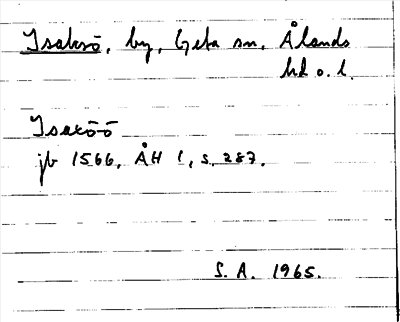 Isaksö, by, Geta sn, Ålands
hd o. l.
Isacöö
jb 1566, ÅH 1, s. 287.
S. A. 1965.